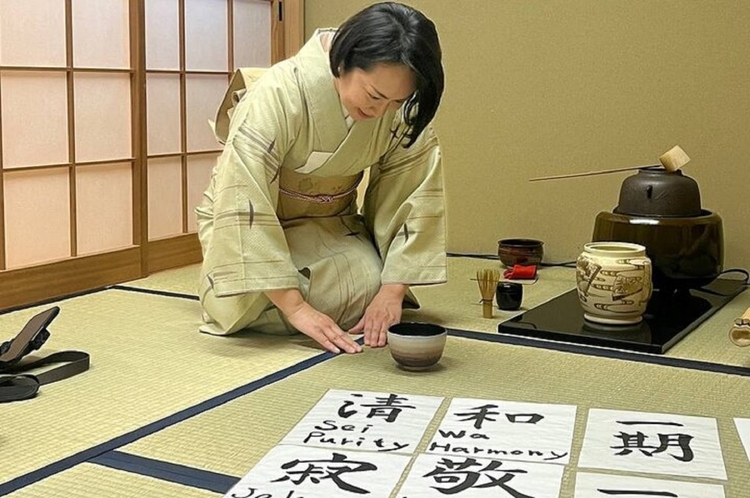 清
Sei
Purity
和
Wa
Harmony
一
期
一
寂
敬